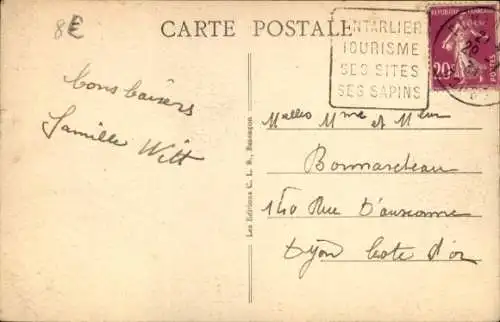 8 E
CARTE POSTALE
NTARLIER
TOURISME
SES SITES
SES SAPINS
REPUBLIQUE FRANÇAISE
20c
POSTES
Bons baisers
Famille Witt
Melles Mme et Meur
Bonnardeau
150 Rue D'auxonne
Dyon Cote d'or
Les Editions C. L. B., Besançon